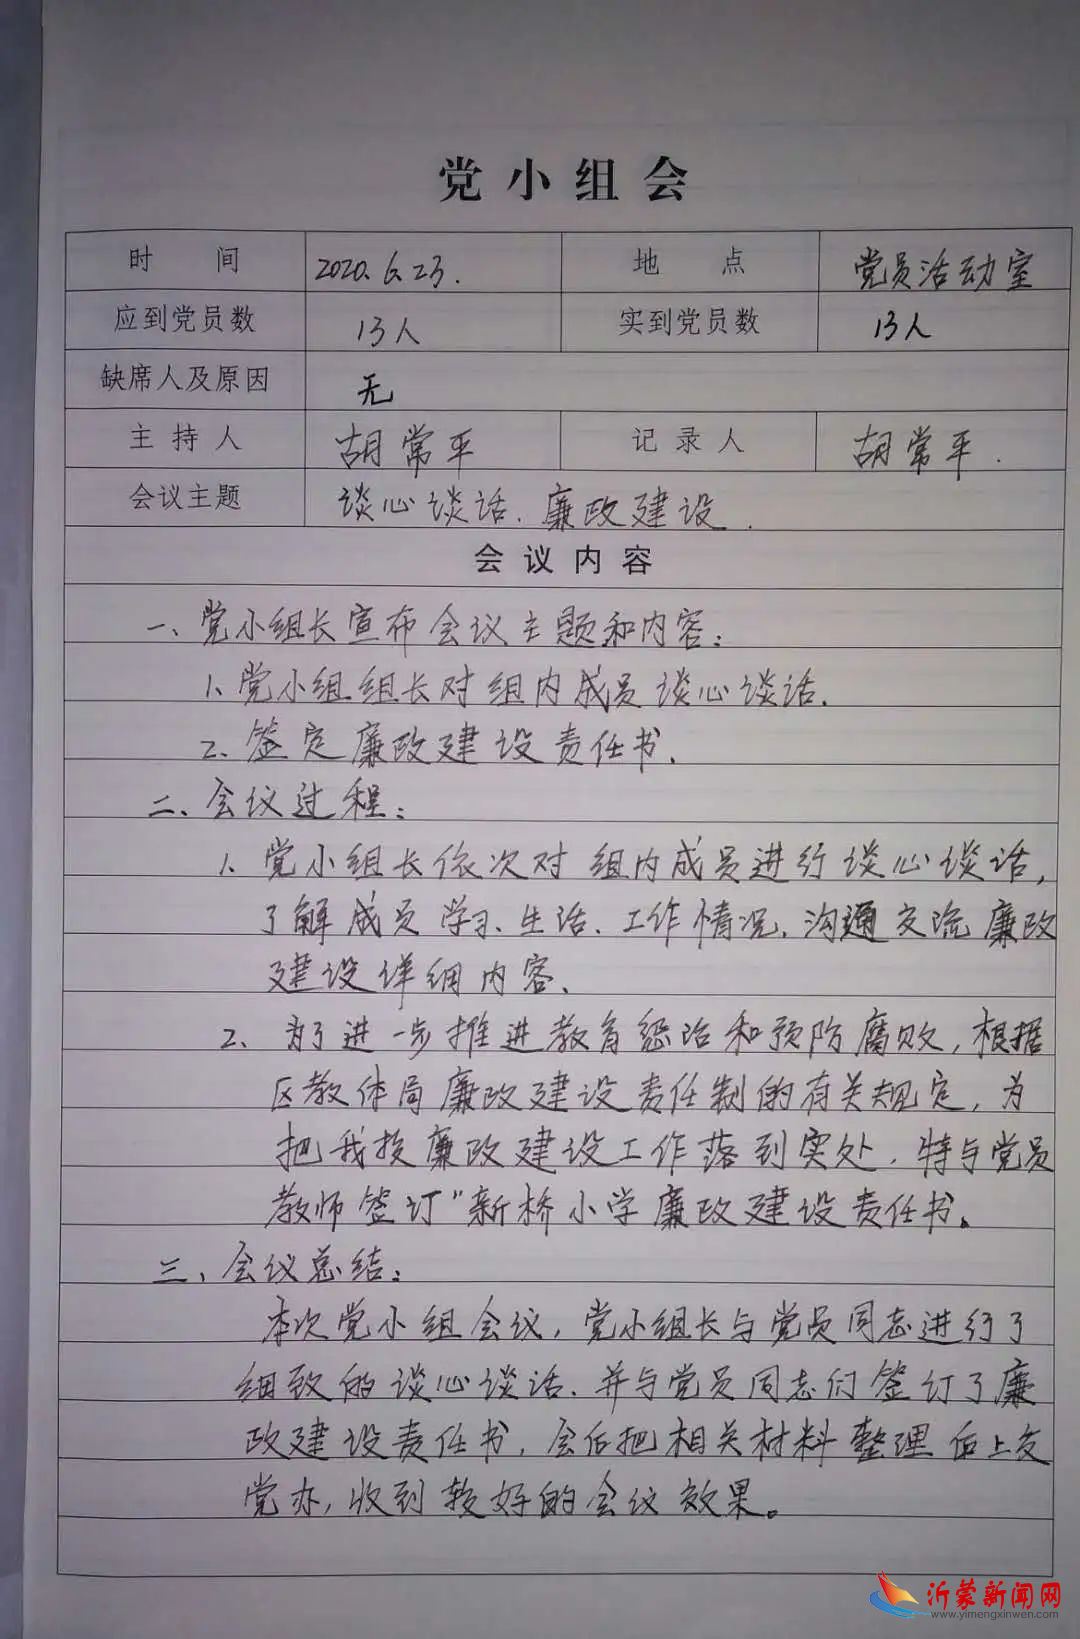 党小组会
时间 2020.6.23. 地点 党员活动室
应到党员数 13人 实到党员数 13人
缺席人及原因 无
主持人 胡常平 记录人 胡常平.
会议主题 谈心谈话.廉政建设.
会议内容
一、党小组长宣布会议主题和内容:
1、党小组组长对组内成员谈心谈话.
2、签定廉政建设责任书.
二、会议过程:
1、党小组长依次对组内成员进行谈心谈话,
了解成员学习、生活、工作情况.沟通交流廉政
建设详细内容.
2、为了进一步推进教育惩治和预防腐败,根据
区教体局廉政建设责任制的有关规定,为
把我校廉政建设工作落到实处.特与党员
教师签订"新桥小学廉政建设责任书。
三、会议总结:
本次党小组会议,党小组长与党员同志进行了
细致的谈心谈话.并与党员同志们签订了廉
政建设责任书,会后把相关材料整理后上交
党办,收到较好的会议效果。
沂蒙新闻网
www.yimengxinwen.com